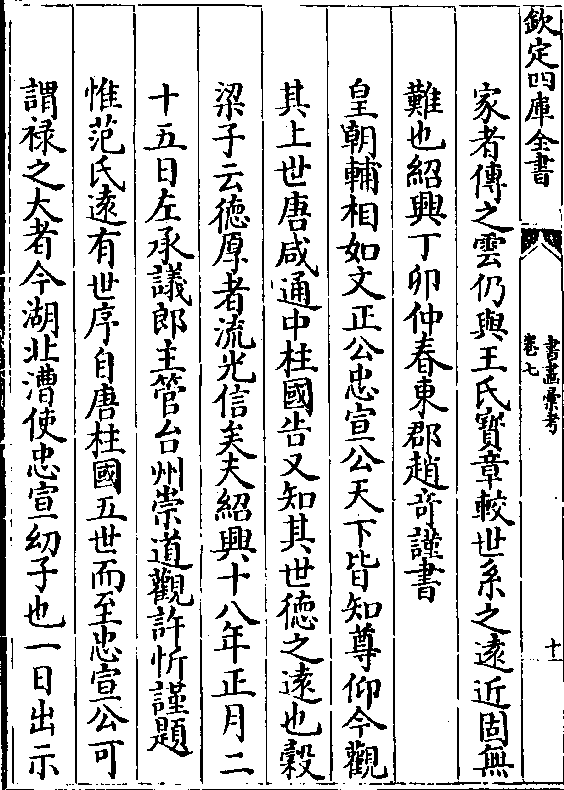 欽定四庫全書
書畫彙考
卷七
十一
家者傳之雲仍與王氏寳章較世系之遠近固無
難也紹興丁卯仲春東郡趙竒謹書
皇朝輔相如文正公忠宣公天下皆知尊仰今觀
其上世唐咸通中柱國告又知其世德之遠也穀
梁子云德厚者流光信矣夫紹興十八年正月二
十五日左承議郎主管台州崇道觀許忻謹題
惟范氏逺有世序自唐柱國五世而至忠宣公可
謂禄之大者今湖北漕使忠宣幼子也一日出示